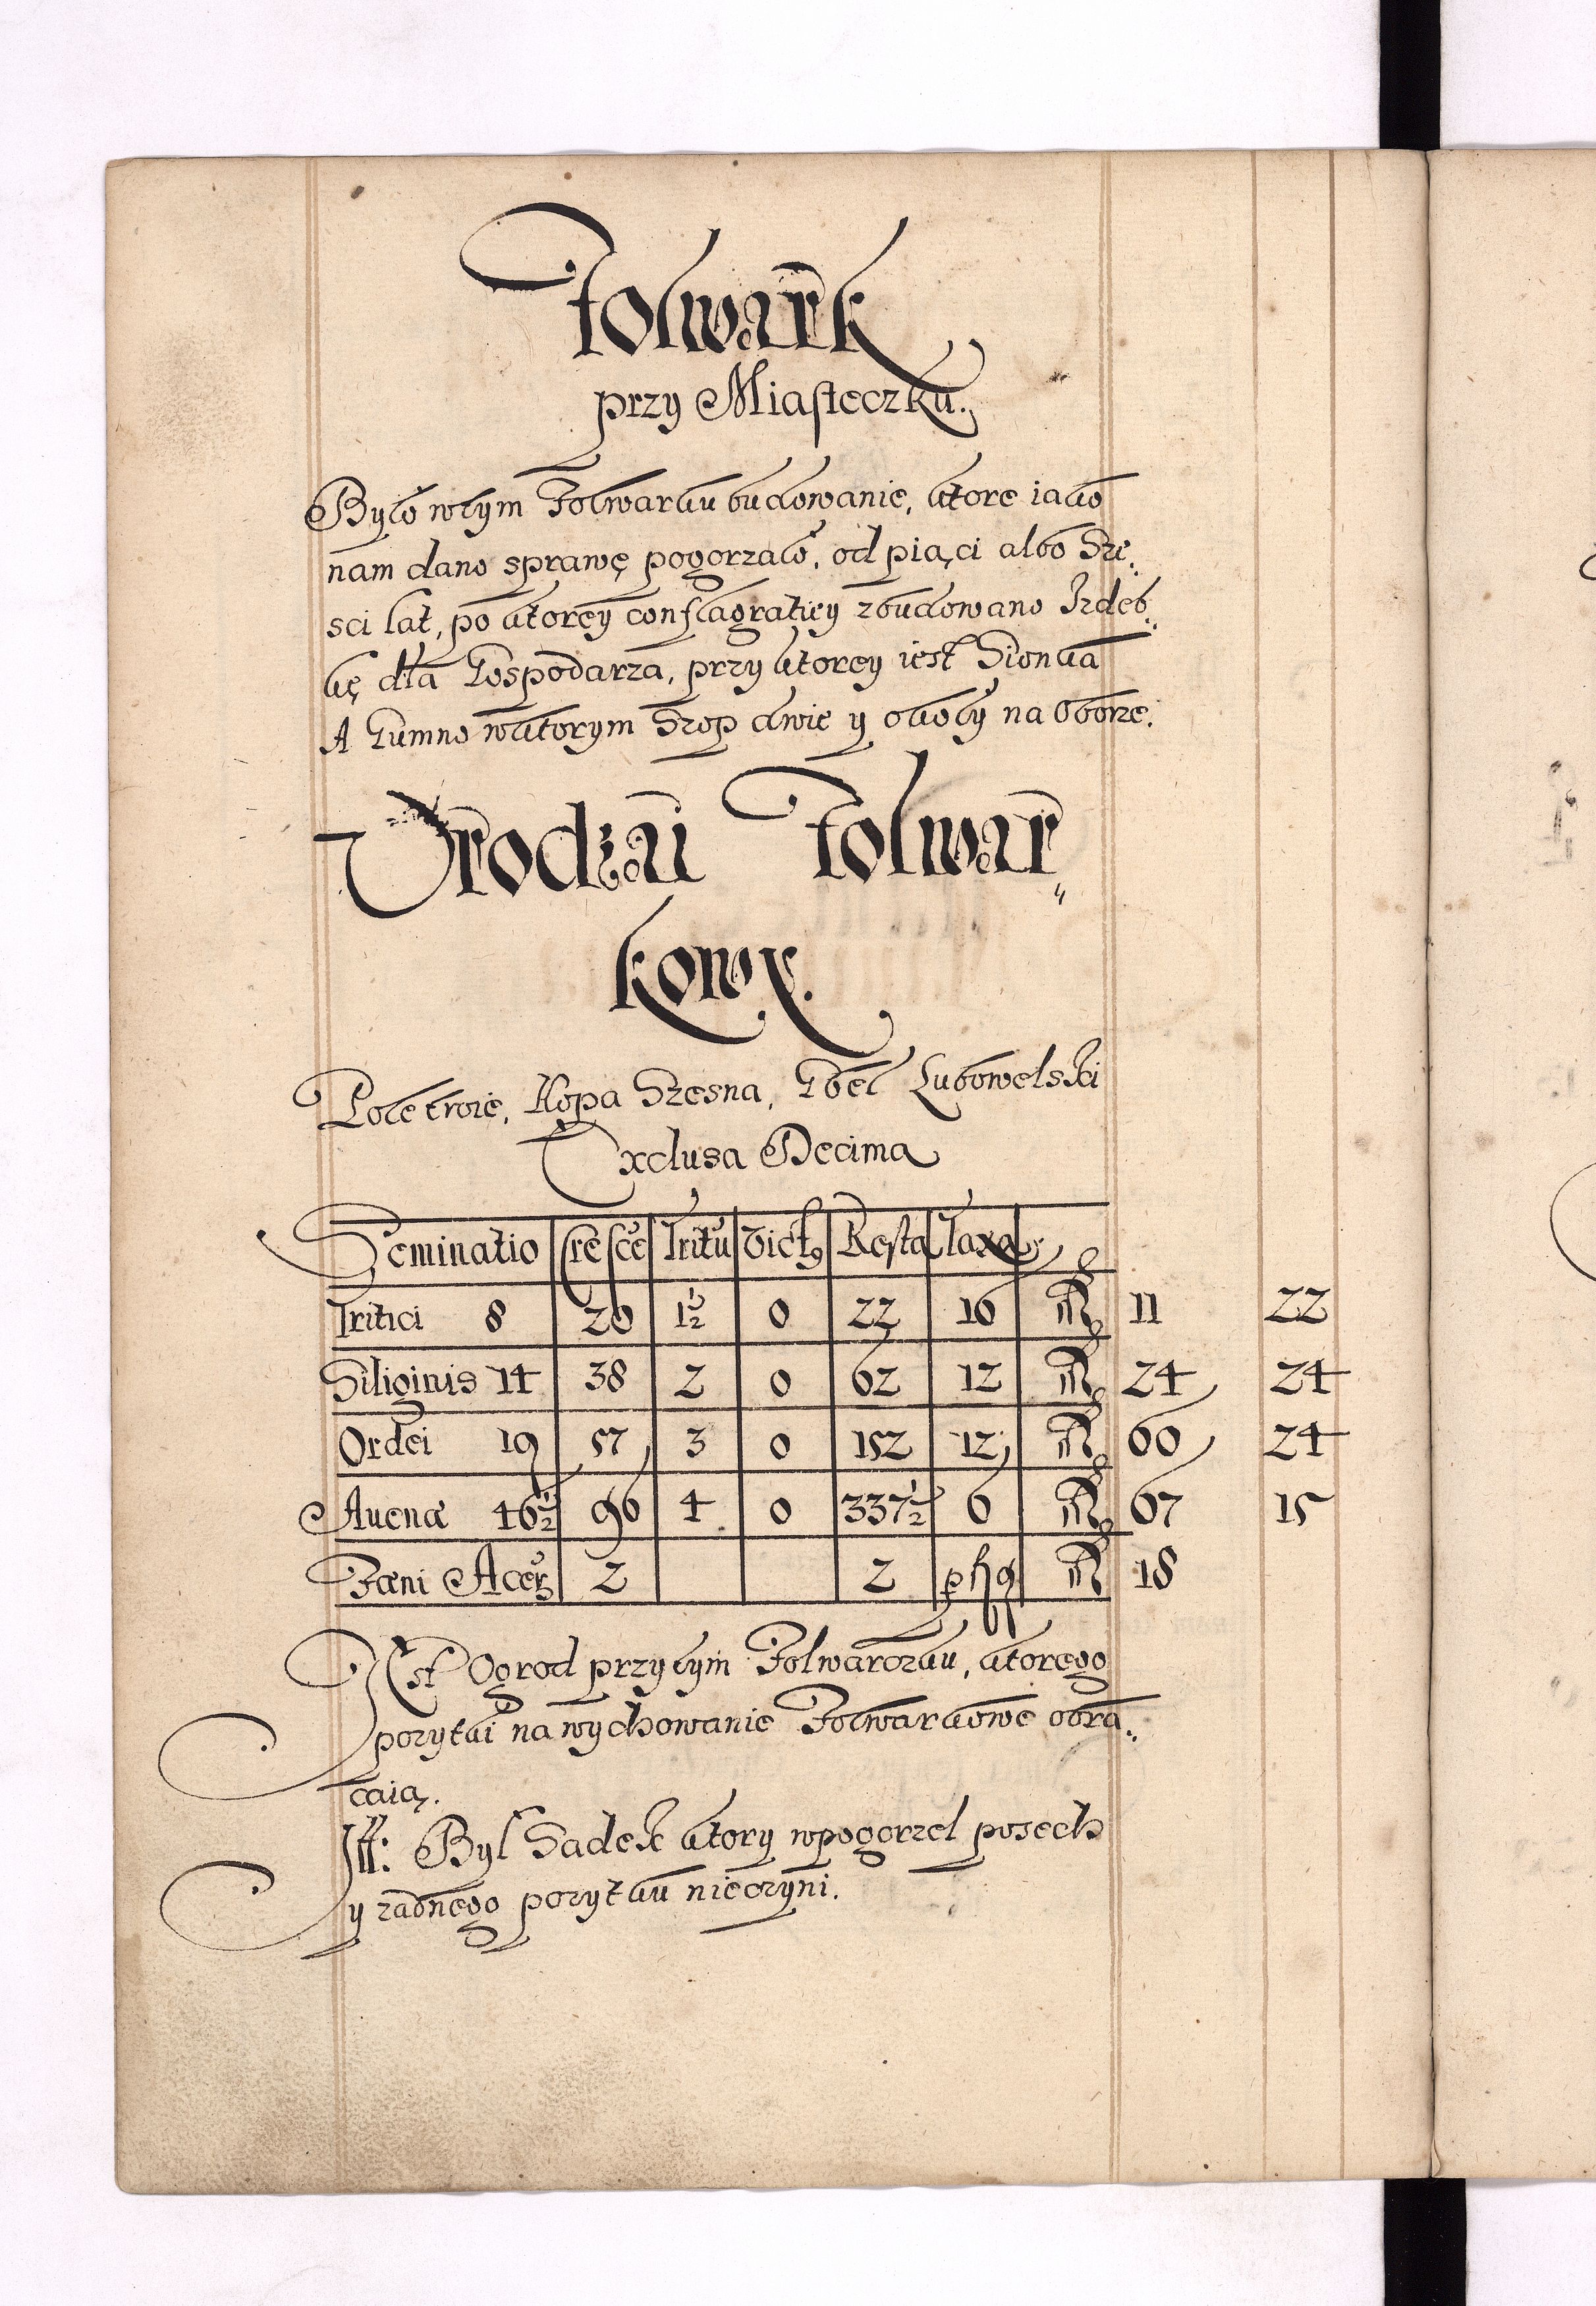 Folwark
przy Miasteczku.
Było wtym Folwarku budowanie, ktore iako
nam dano sprawę pogorzało, od piąci albo Sze„
sci lat, po ktorey conflagratiey zbudowano Izdeb„
kę dla Gospodarza, przy ktorey iest Sionka
A Gumno wktorym Szop dwie y okoły na Oborze.
Vrodzai Folwar„
kowy.
Pole troie, Kopa Szesna, Gbel Lubowelski
Exclusa Decima
Seminatio Cresce Tritu Vict9 Resta Taxa
Tritici 8 20 1½ 0 22 16 11 22
Siliginis 14 38 2 0 62 12 24 24
Ordei 19 57 3 0 152 12 60 24
Auenæ 46½ 96 4 0 337½ 6 67 15
Fæni Acer 2 2 18
IEst Ogrod przytym Folwarczku, ktorego
pozytki na wychowanie Folwarkowe obra„
caią.
It: Byl Sadek ktory wpogorzel posech
y zadnego pozytku nieczyni.